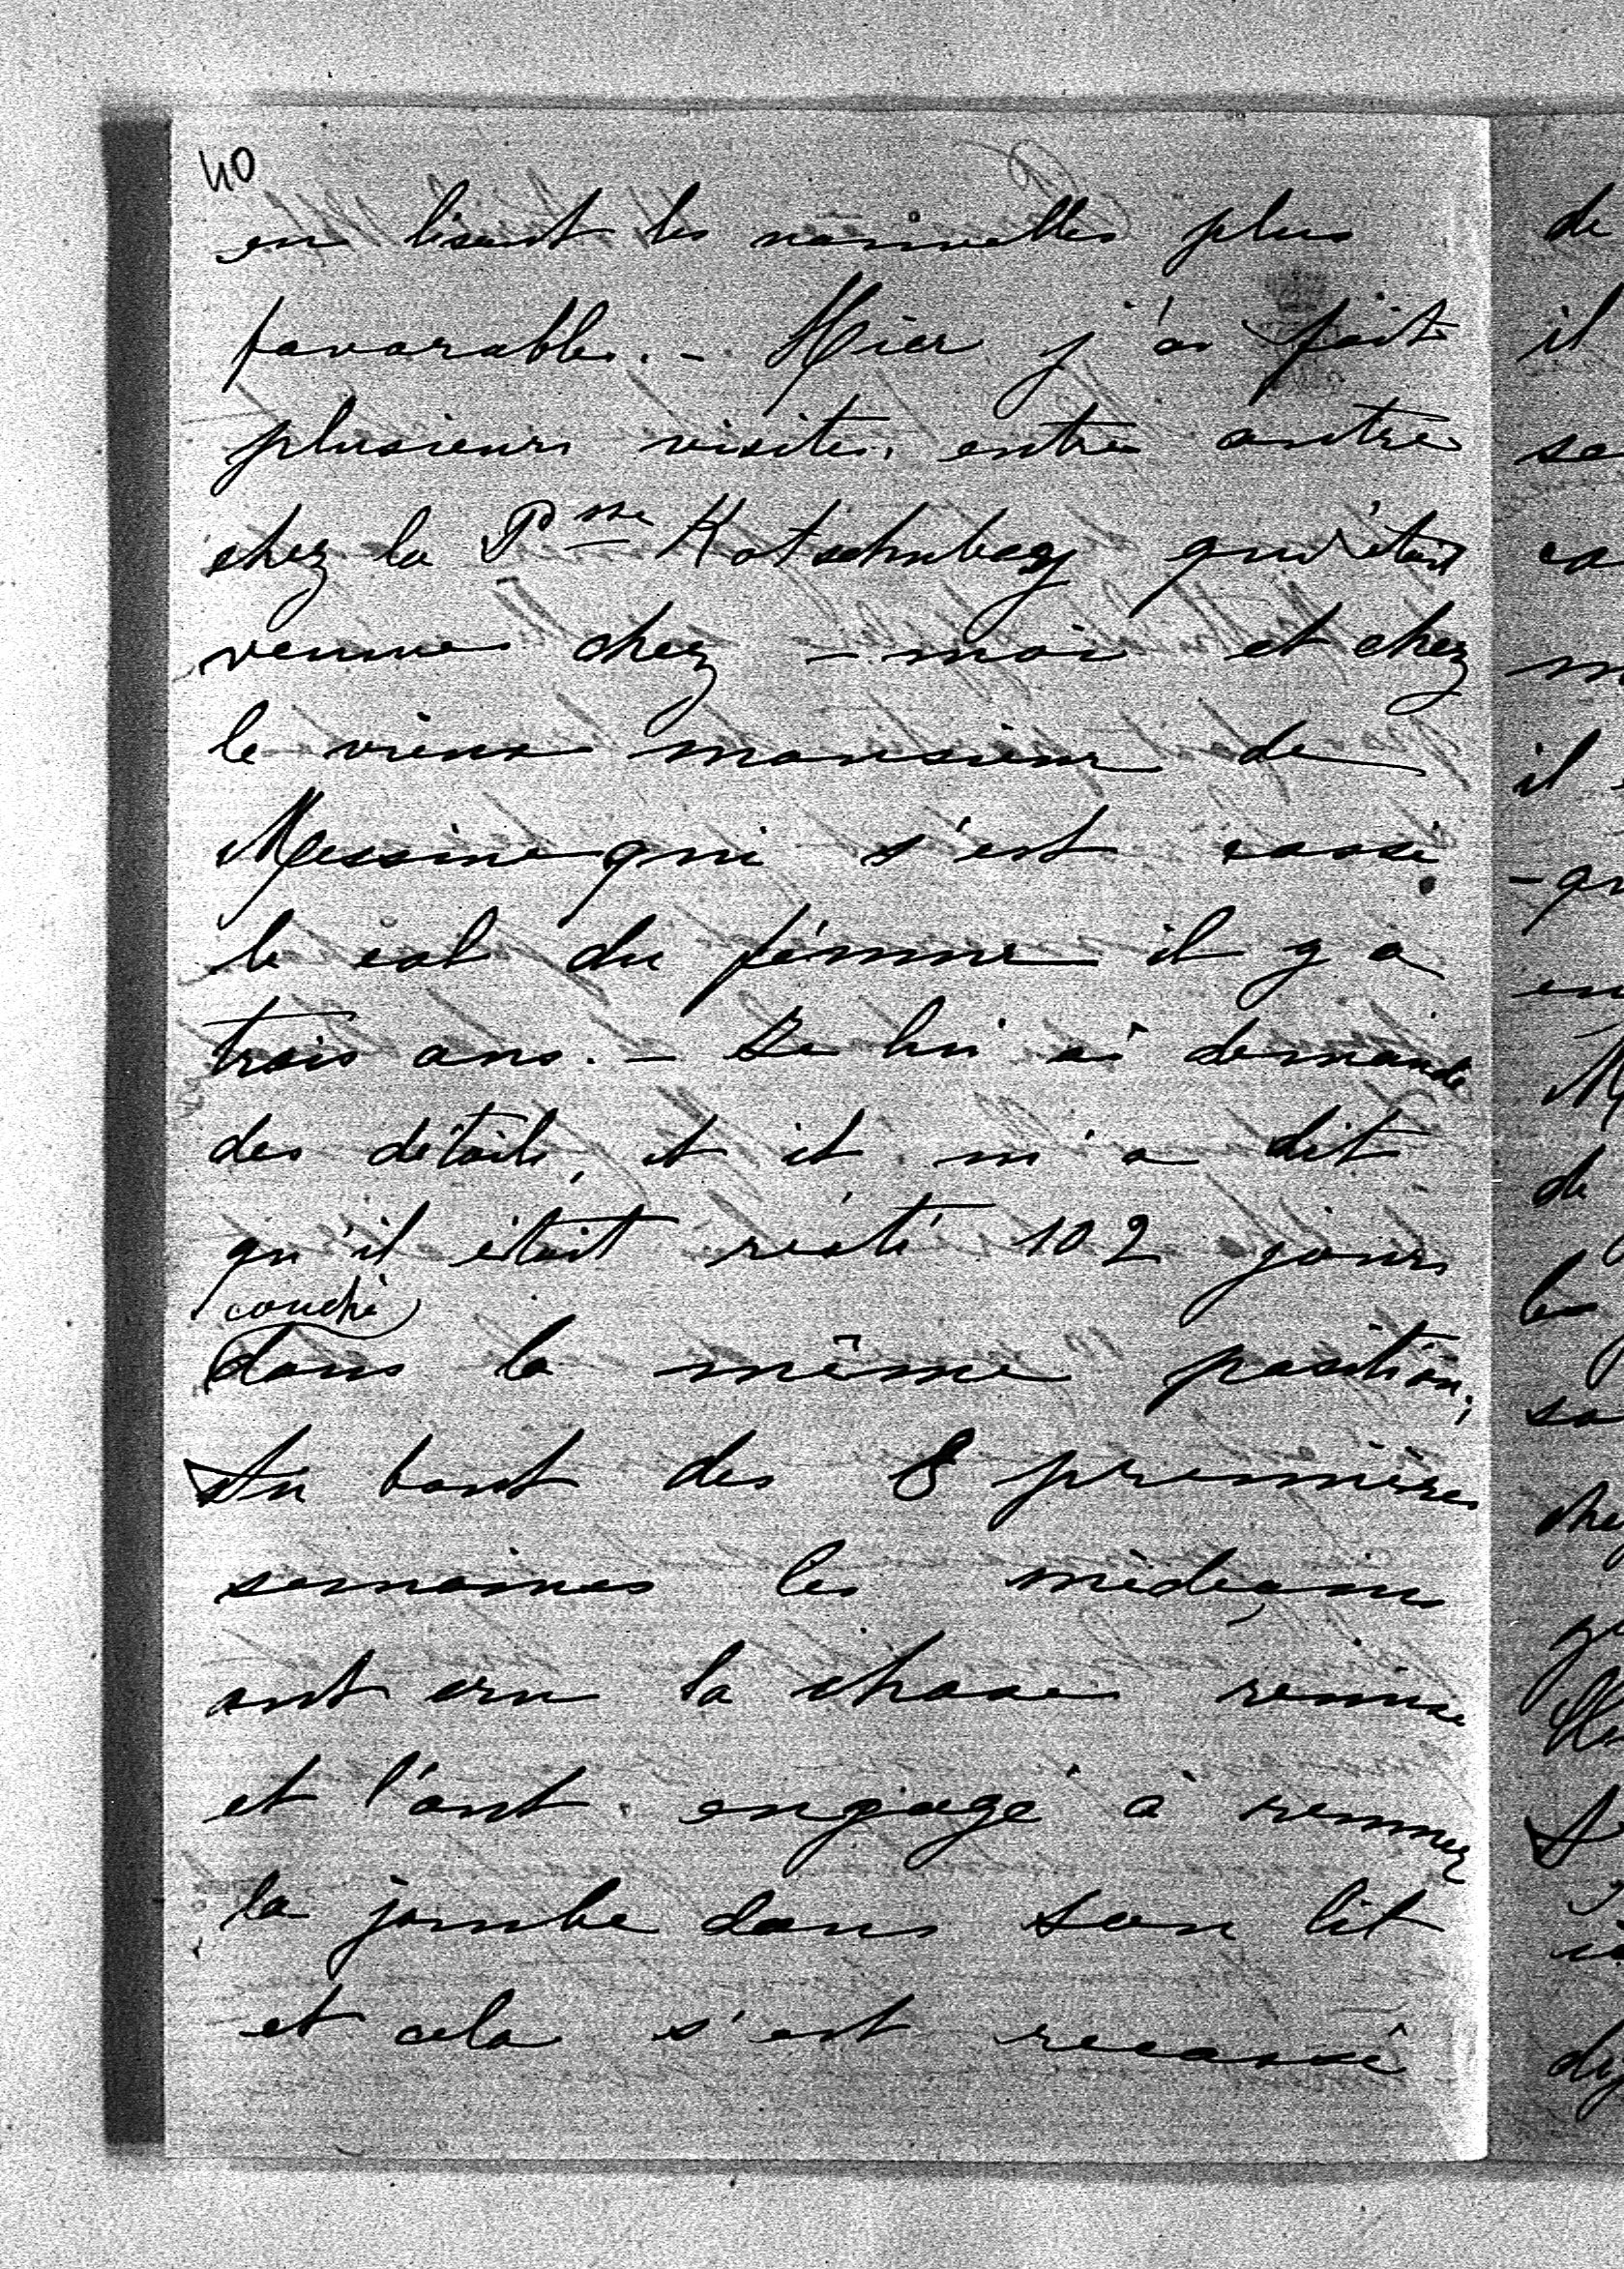 40
en lisant les nouvelles plus
favorables. - Hier j'ai fait
plusieurs visites, entre autre
chez la Psse Kotschubey qui était
venue chez - moi et chez
le vieux monsieur de
Messine qui s'est cassé
le col du fémur il y a
trois ans. - Je lui ai demandé
des détails, et il m'a dit
qu'il était resté 102 jours
couché
dans la même position;
Au bout des 8 premières
semaines les médeçins
ont cru la chose remise
et l'ont engagé à remuer
la jambe dans son lit
et cela s'est recassé
de
il
il
de